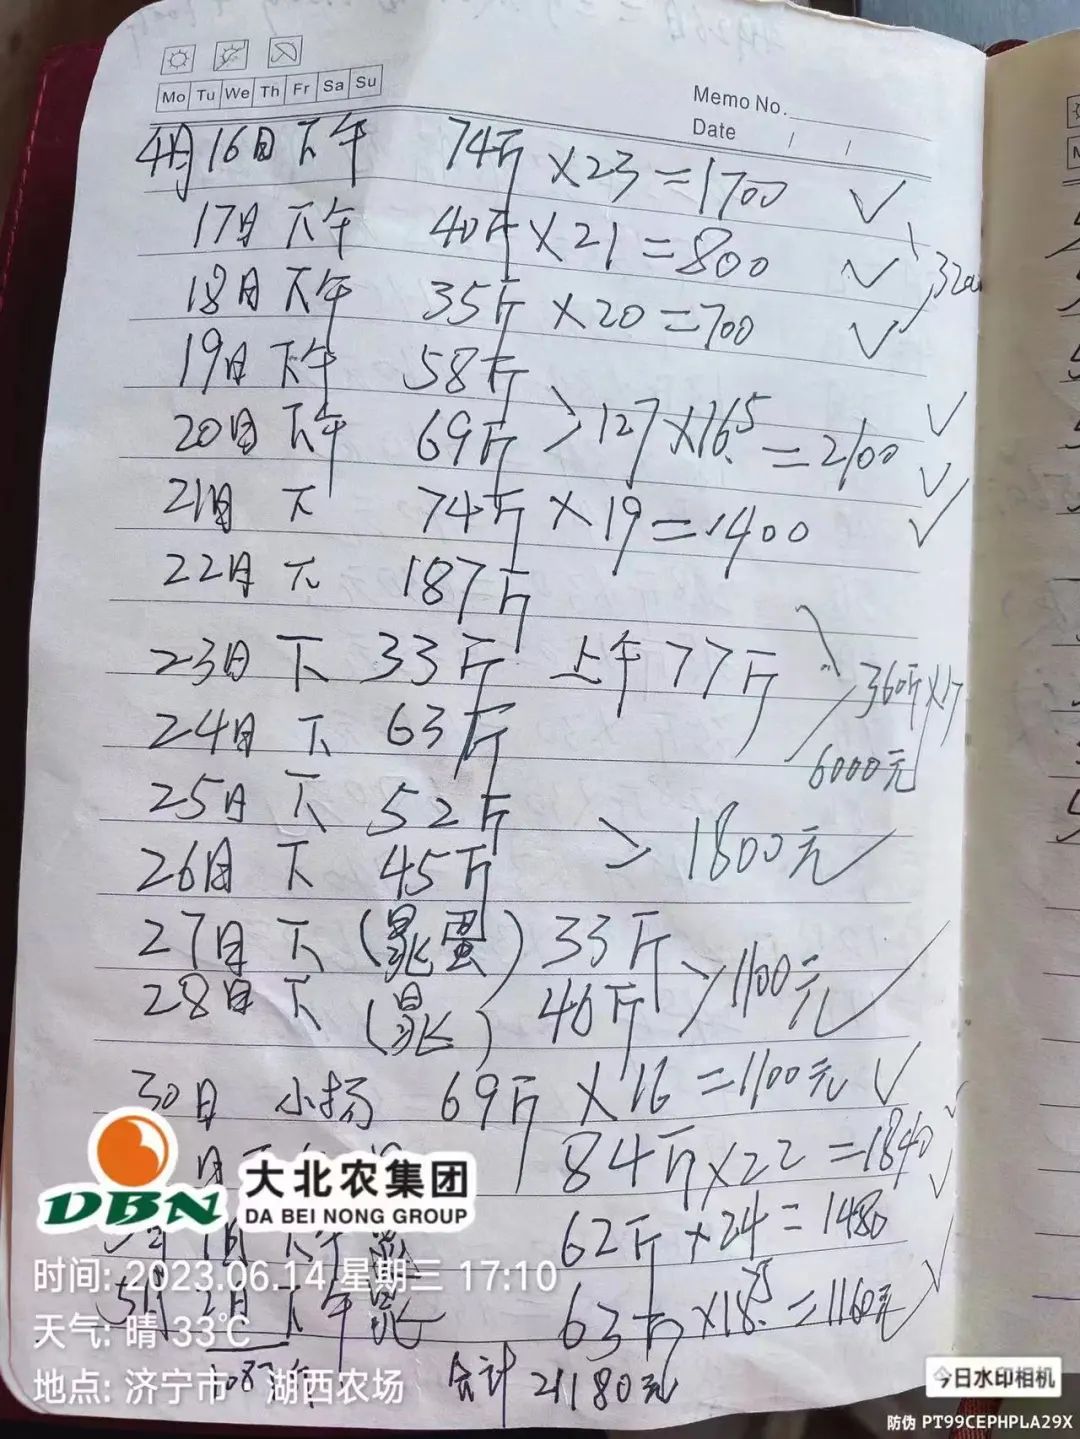 Mo Tu We Th Fr Sa Su
Memo No.
Date / /
4月16日下午 74斤×23=1700 ✓
17日下午 40斤×21=800 ✓
320
18日下午 35斤×20=700 ✓
19日下午 58斤 ✓
20日下午 69斤 >127×16.5=2100 ✓
21日 下 74斤×19=1400 ✓
22日 下 187斤
23日 下 33斤 上午77斤
360斤×17
24日 下 63斤
6000元
25日 下 52斤
26日 下 45斤 >1800元
27日 下 (蛋) 33斤
28日 下 46斤 >1100元
30日 小扬 69斤×16=1100元 ✓
84斤×22=1840
62斤×24=1480
5月2日下午 63斤×18.5=1160元
合计 21180元
DBN 大北农集团
DA BEI NONG GROUP
时间: 2023.06.14 星期三 17:10
天气: 晴 33℃
地点: 济宁市·湖西农场
今日水印相机
防伪 PT99CEPHPLA29X